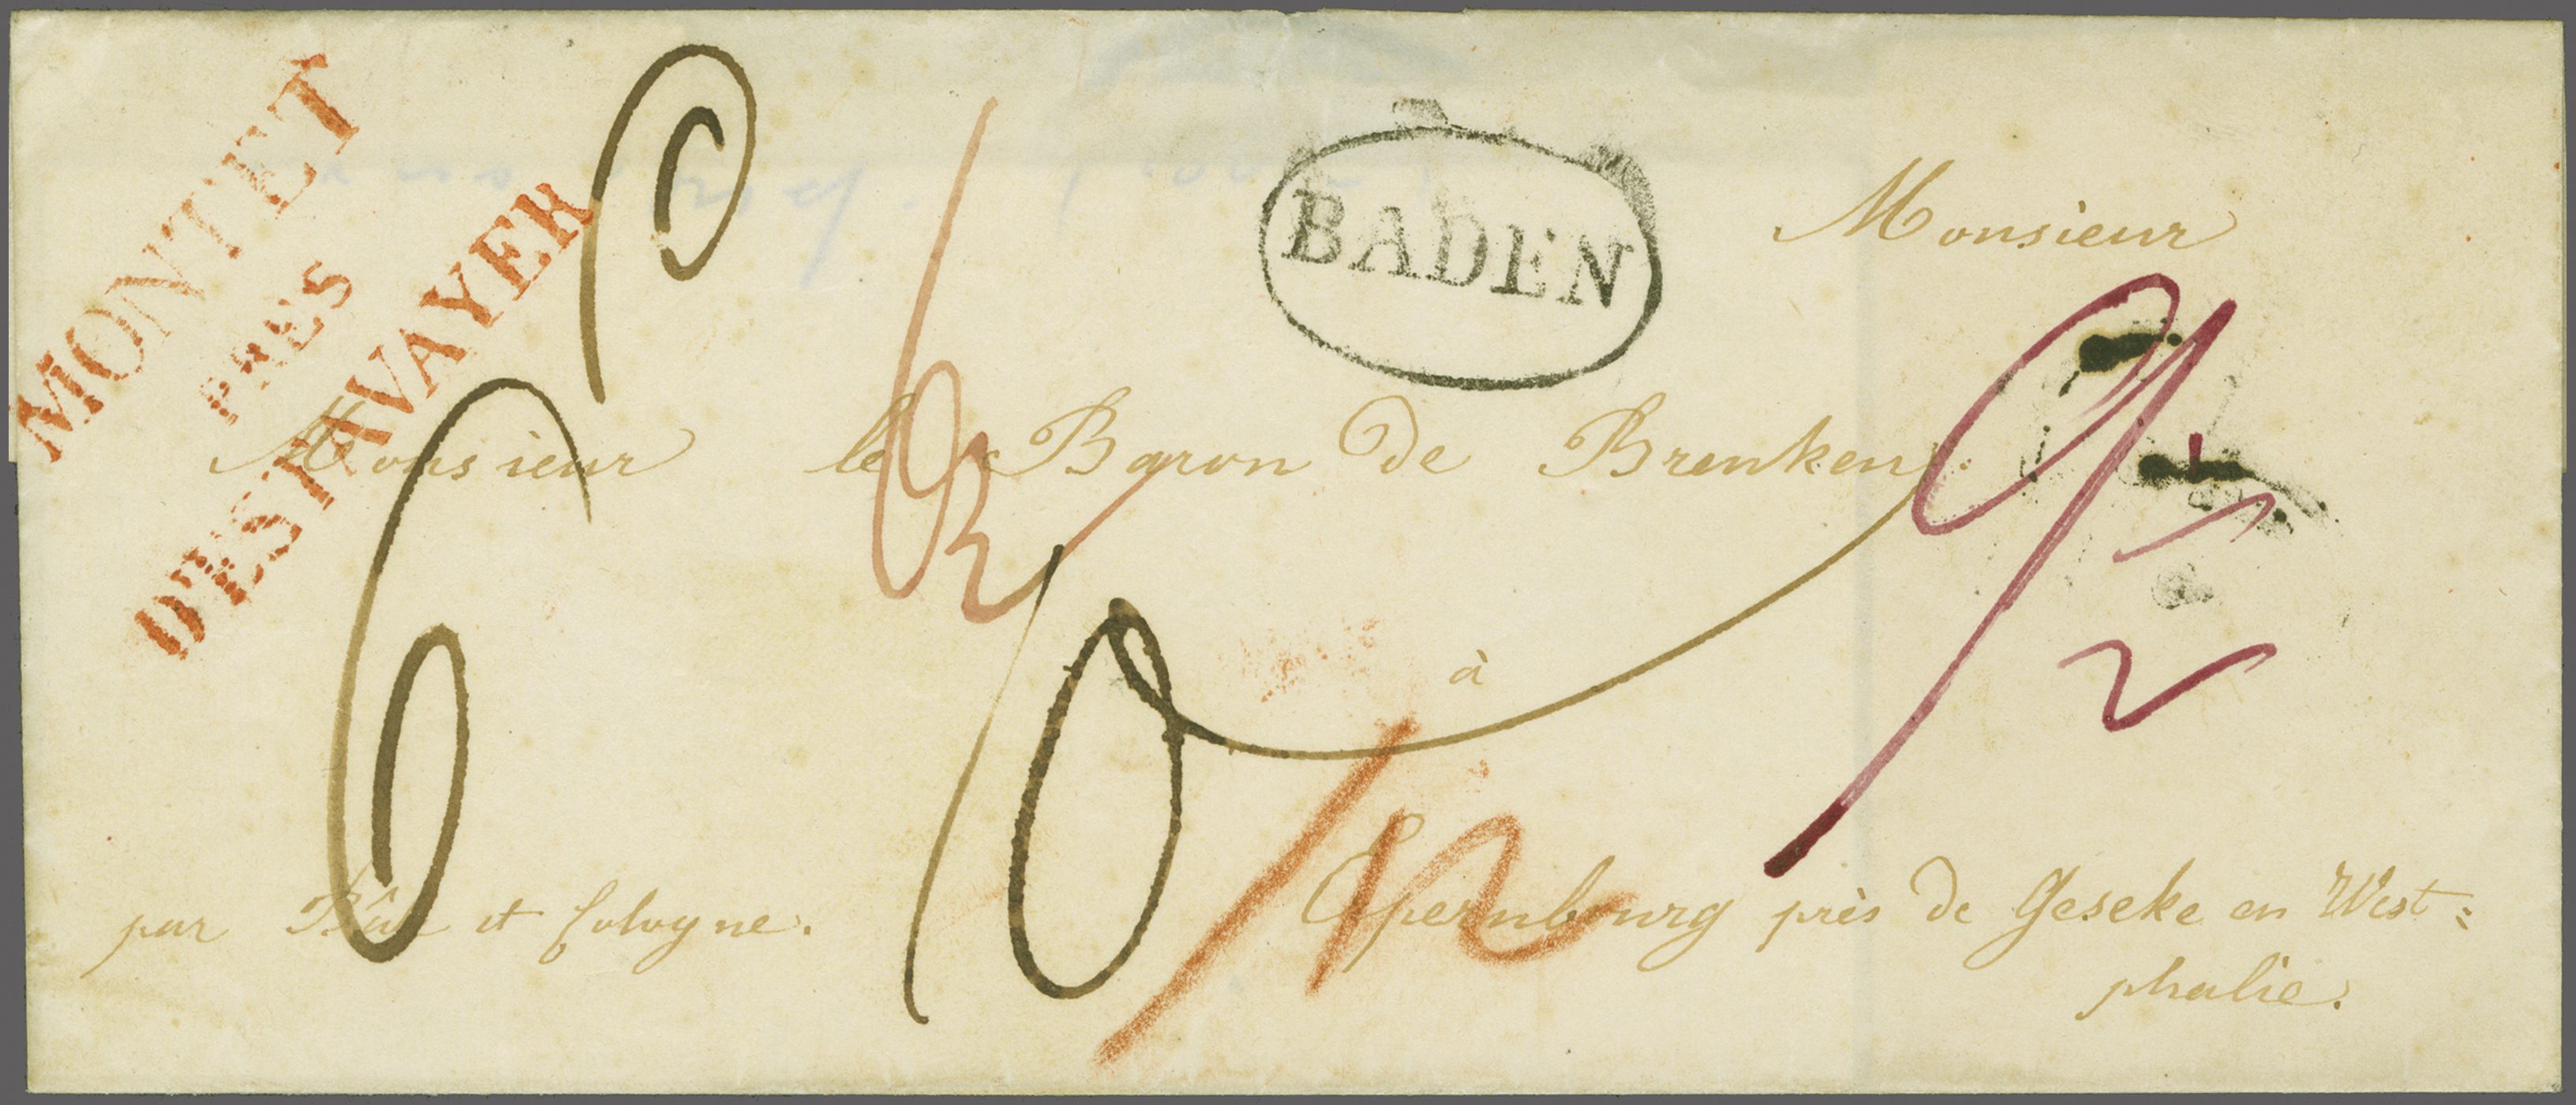 MONTET
PRES
D'ESTAVAYER
BADEN
Monsieur
Monsieur le Baron de Brenken.
à
Epernbourg près de Geseke en West=
phalie.
par Bâle et Cologne.
6
9 1/2